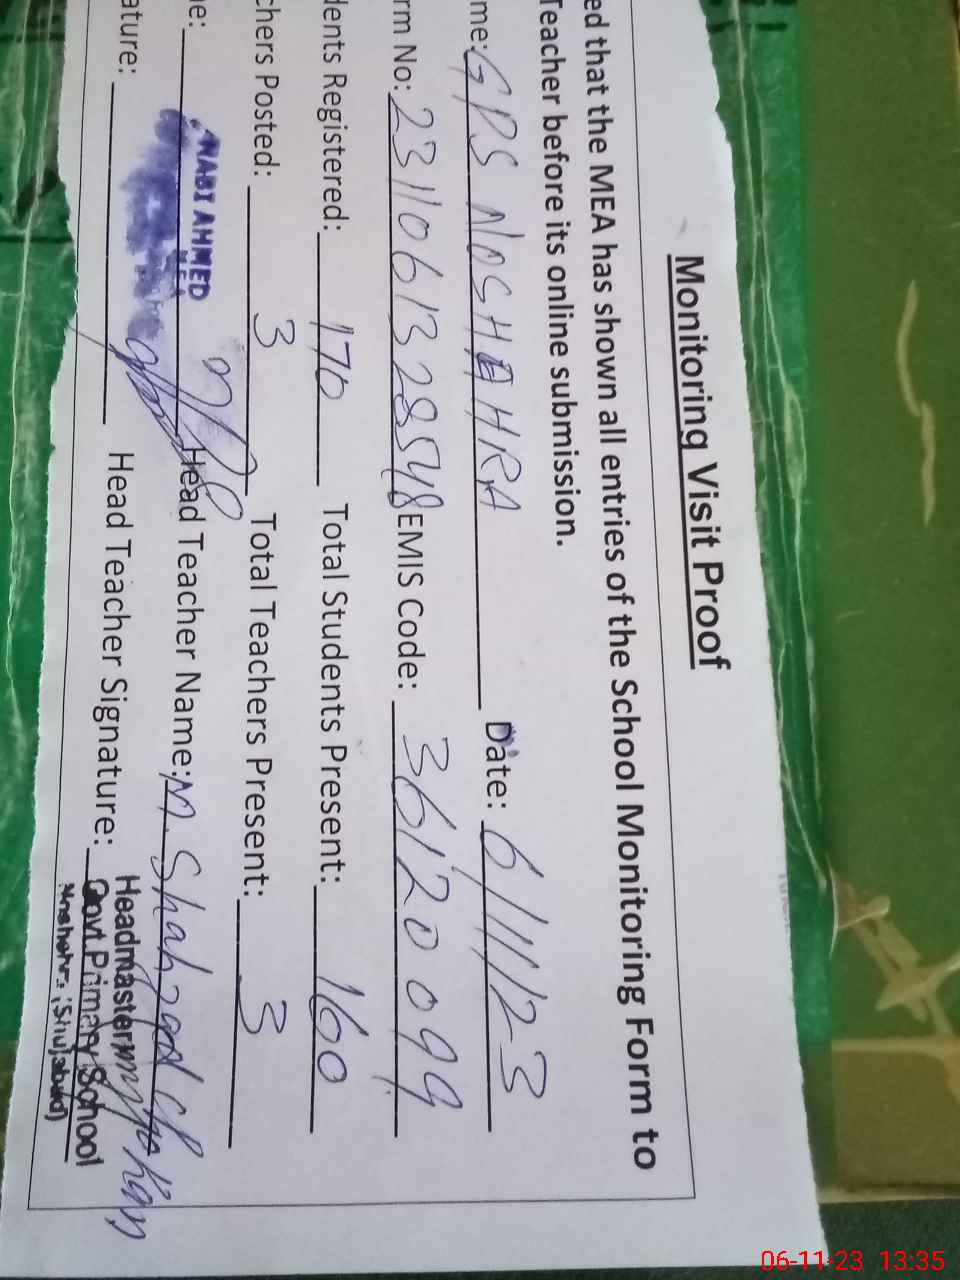 Monitoring Visit Proof
ed that the MEA has shown all entries of the School Monitoring Form to
Teacher before its online submission.
me: GPS NOSHAHRA Date: 6/11/23
rm No: 23110613 28548 EMIS Code: 36120099
dents Registered: 170 Total Students Present: 160
chers Posted: 3 Total Teachers Present: 3
e: NABI AHMED Head Teacher Name: M. Shahzad
MEA
ature: Head Teacher Signature:
Headmaster
Govt. Primary School
(Shujabad)
06-11-23 13:35